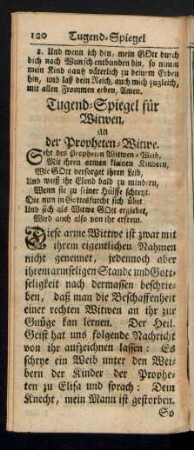 120 Tugend-Spiegel
2. Und wenn ich bin, mein GOtt durch
dich nach Wunsch entbunden bin, so nimm
mein Kind auch väterlich zu deinem Erben
hin, und laß dein Reich, auch mich zugleich,
mit allen Frommen erben, Amen.
Tugend-Spiegel für
Witwen,
an
der Propheten-Witwe.
Seht des Propheten Witwen-Weib,
Mit ihren armen kleinen Kindern,
Wie GOtt versorget ihren Leib,
Und weiß ihr Elend bald zu mindern,
Wenn sie zu seiner Hülffe schreyt.
Die nun in Gottesfurcht sich übet
Und sich als Witwe GOtt ergiebet,
Wird auch also von ihr erfreut.
Diese arme Wittwe ist zwar mit
ihrem eigentlichen Nahmen
nicht genennet, jedennoch aber
ihrem armseligen Stande und Gott-
seligkeit nach dermassen beschrie-
ben, daß man die Beschaffenheit
einer rechten Witwen an ihr zur
Gnüge kan lernen. Der Heil.
Geist hat uns folgende Nachricht
von ihr aufzeichnen lassen: Es
schrye ein Weib unter den Wei-
bern der Kinder der Prophe-
ten zu Elisa und sprach: Dein
Knecht, mein Mann ist gestorben.
So